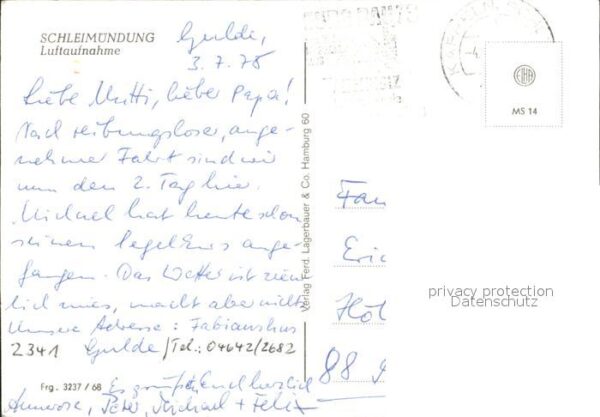 SCHLEIMÜNDUNG
Luftaufnahme
Gulde,
3.7.78
Liebe Mutti, lieber Papa!
Nach reibungsloser, ange-
nehmer Fahrt sind wir
nun den 2. Tag hier.
Michael hat heute schon
seinen Segelkurs ange-
fangen. Das Wetter ist ziem-
lich mies, macht aber nichts.
Unsere Adresse: Fabianshus
2341 Gulde/Tel.: 04642/2682
Es grüßen Euch herzlich
Annerose, Peter, Michael + Felix
Frg. 3237 / 68
Verlag Ferd. Lagerbauer & Co. Hamburg 60
MS 14
Fam
Eric
Höl
88
privacy protection
Datenschutz